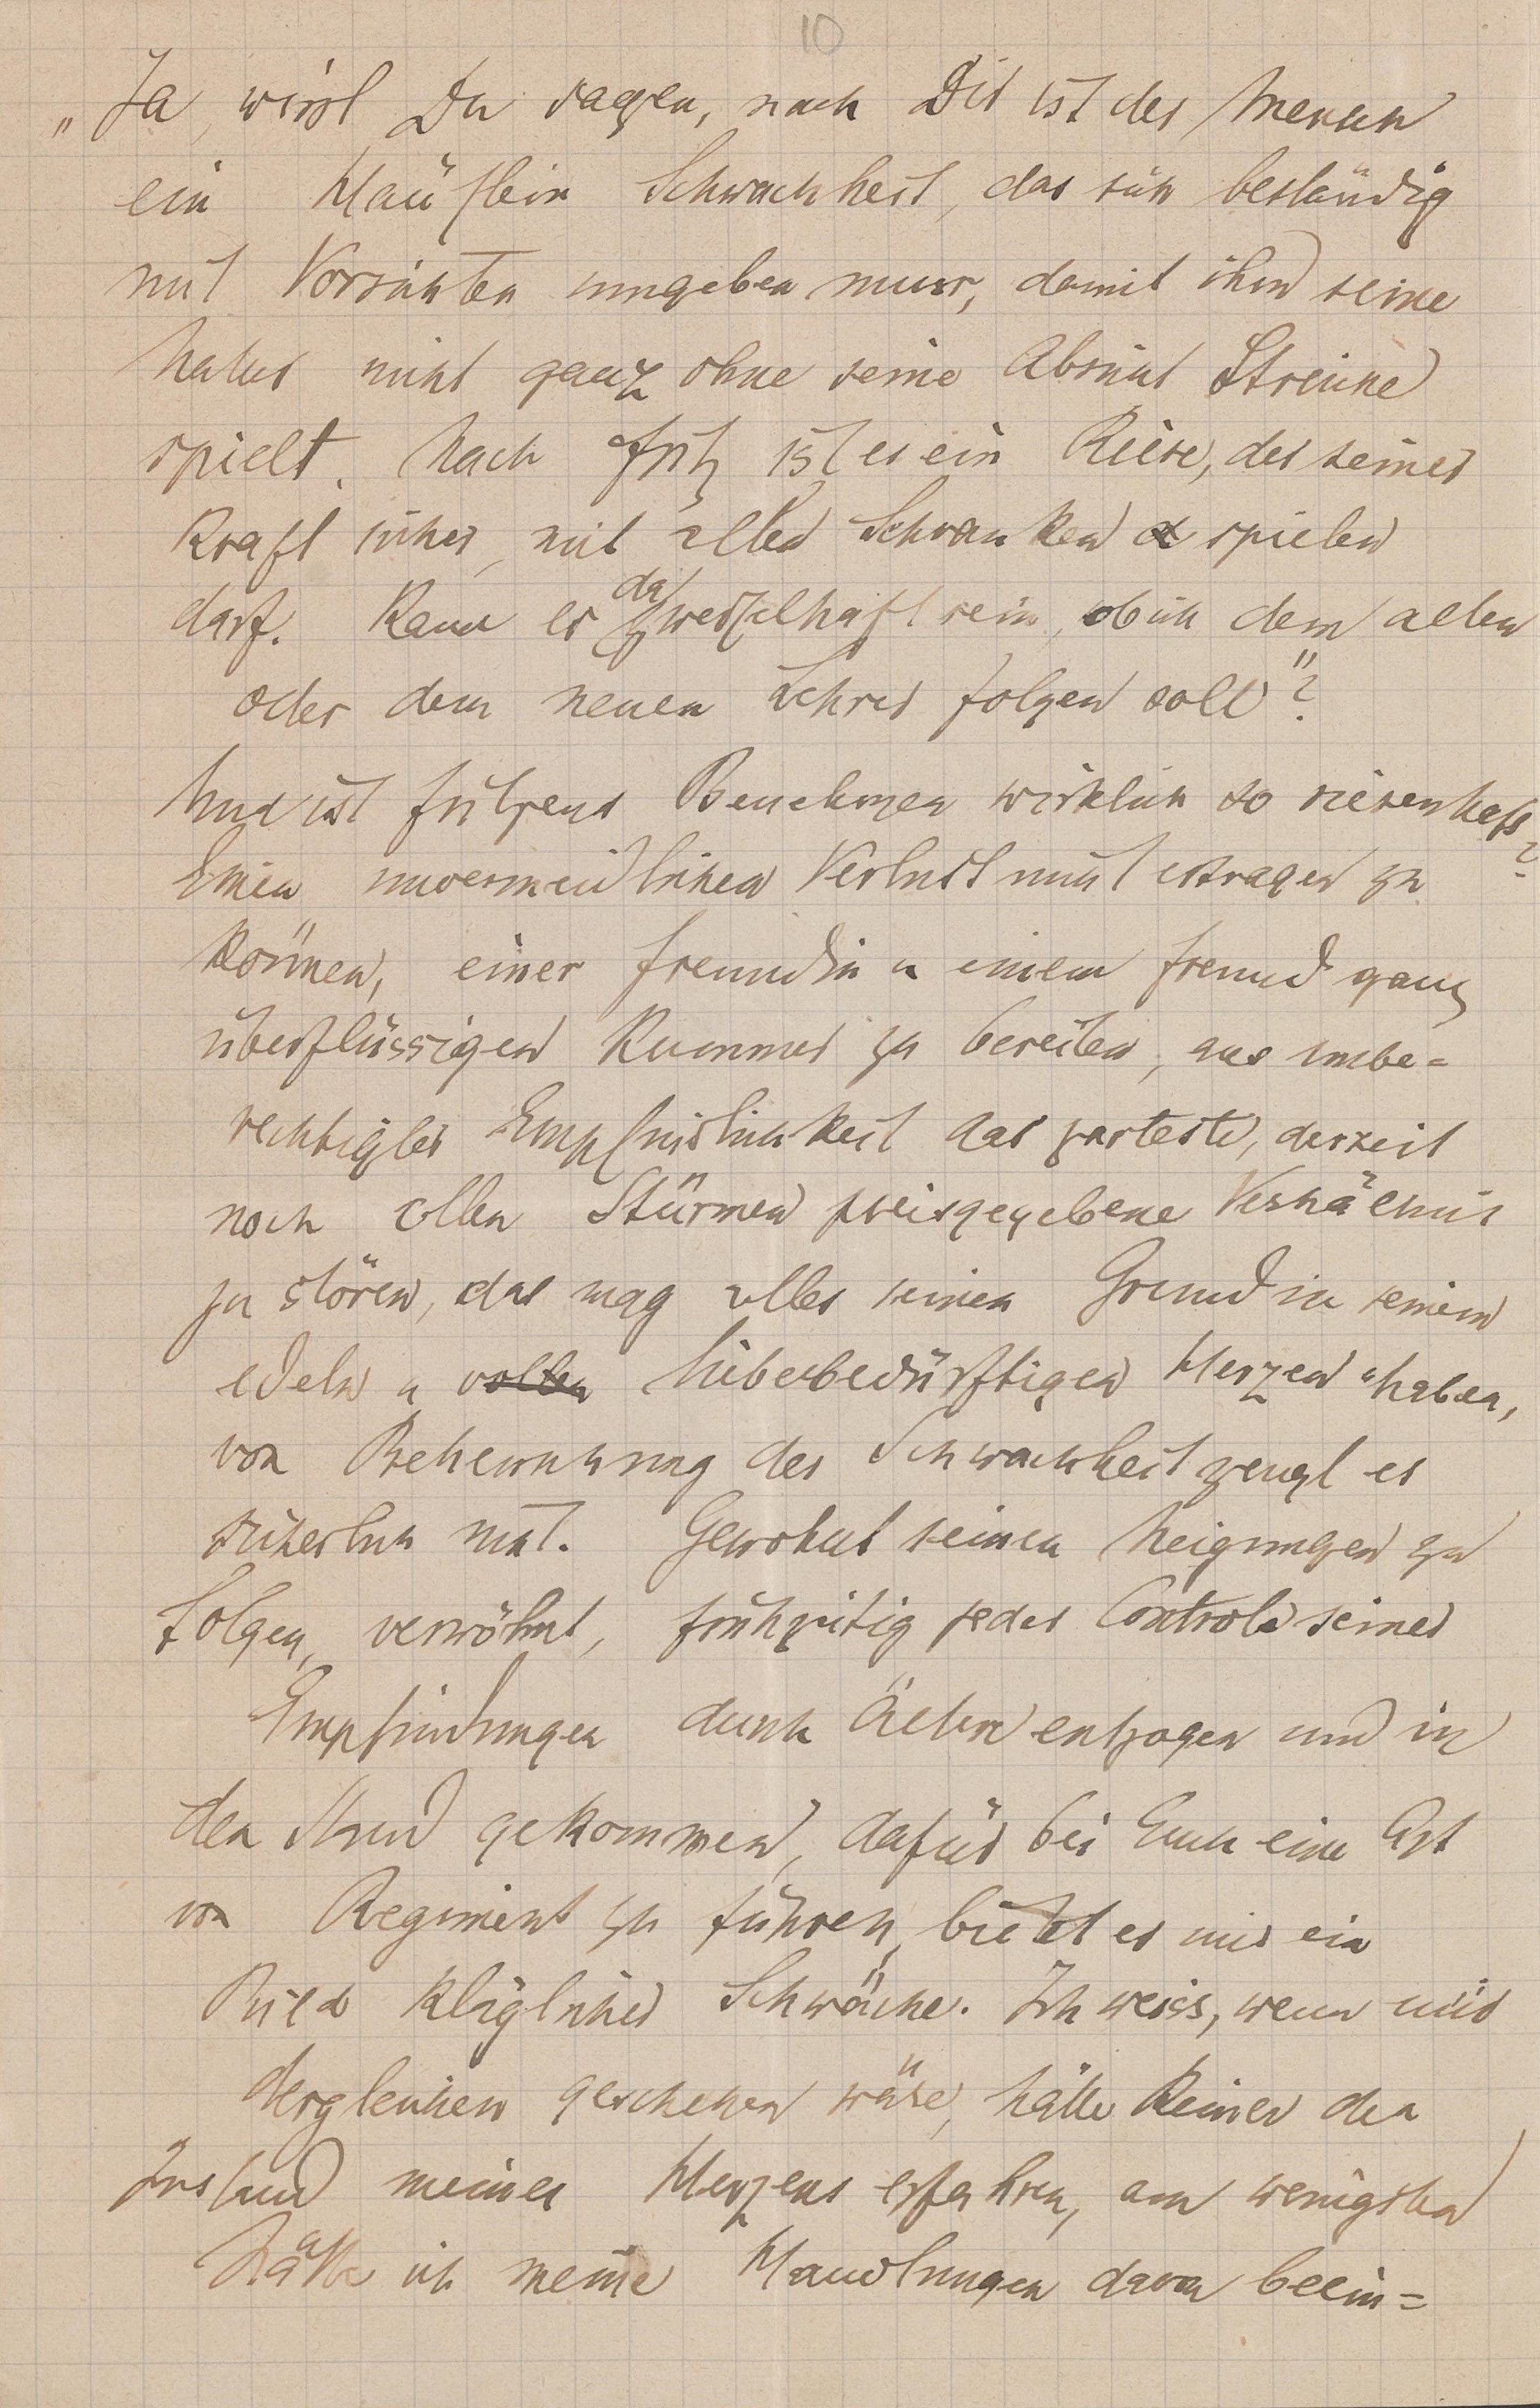 10
„Ja, wirst Du sagen, nach Dir ist der Mensch
ein Häuflein Schwachheit, das sich beständig
mit Vorsichten umgeben muss, damit ihm seine
Natur nicht ganz ohne seine Absicht Streiche
spielt. Nach Fritz ist es ein Riese, der seiner
Kraft sicher, mit allen Schranken spielen
darf. Kann es da zweifelhaft sein, ob ich dem alten
oder dem neuen Lehrer folgen soll"?
Und ist Fritzens Benehmen wirklich so riesenhaft?
Einen unvermeidlichen Verlust nicht ertragen zu
können, einer Freundin u einem Freund ganz
überflüssigen Kummer zu bereiten, aus unbe=
rechtigter Empfindlichkeit das zarteste, derzeit
noch allen Stürmen preisgegebene Verhältnis
zu stören, das mag alles seinen Grund in seinem
edeln u vollen liebebedürftigen Herzen haben,
von Beherrschung der Schwachheit zeugt es
sicherlich nicht. Gewohnt seinen Neigungen zu
folgen, verwöhnt, frühzeitig jeder Controle seiner
Empfindungen durch Ältere entzogen und in
den Stand gekommen, dafür bei Euch eine Art
von Regiment zu führen, bietet er mir ein
Bild kläglicher Schwäche. Ich weiss, wenn mir
dergleichen geschehen wäre, hätte Keiner den
Zustand meines Herzens erfahren, am wenigsten
hätte ich meine Handlungen davon beein=